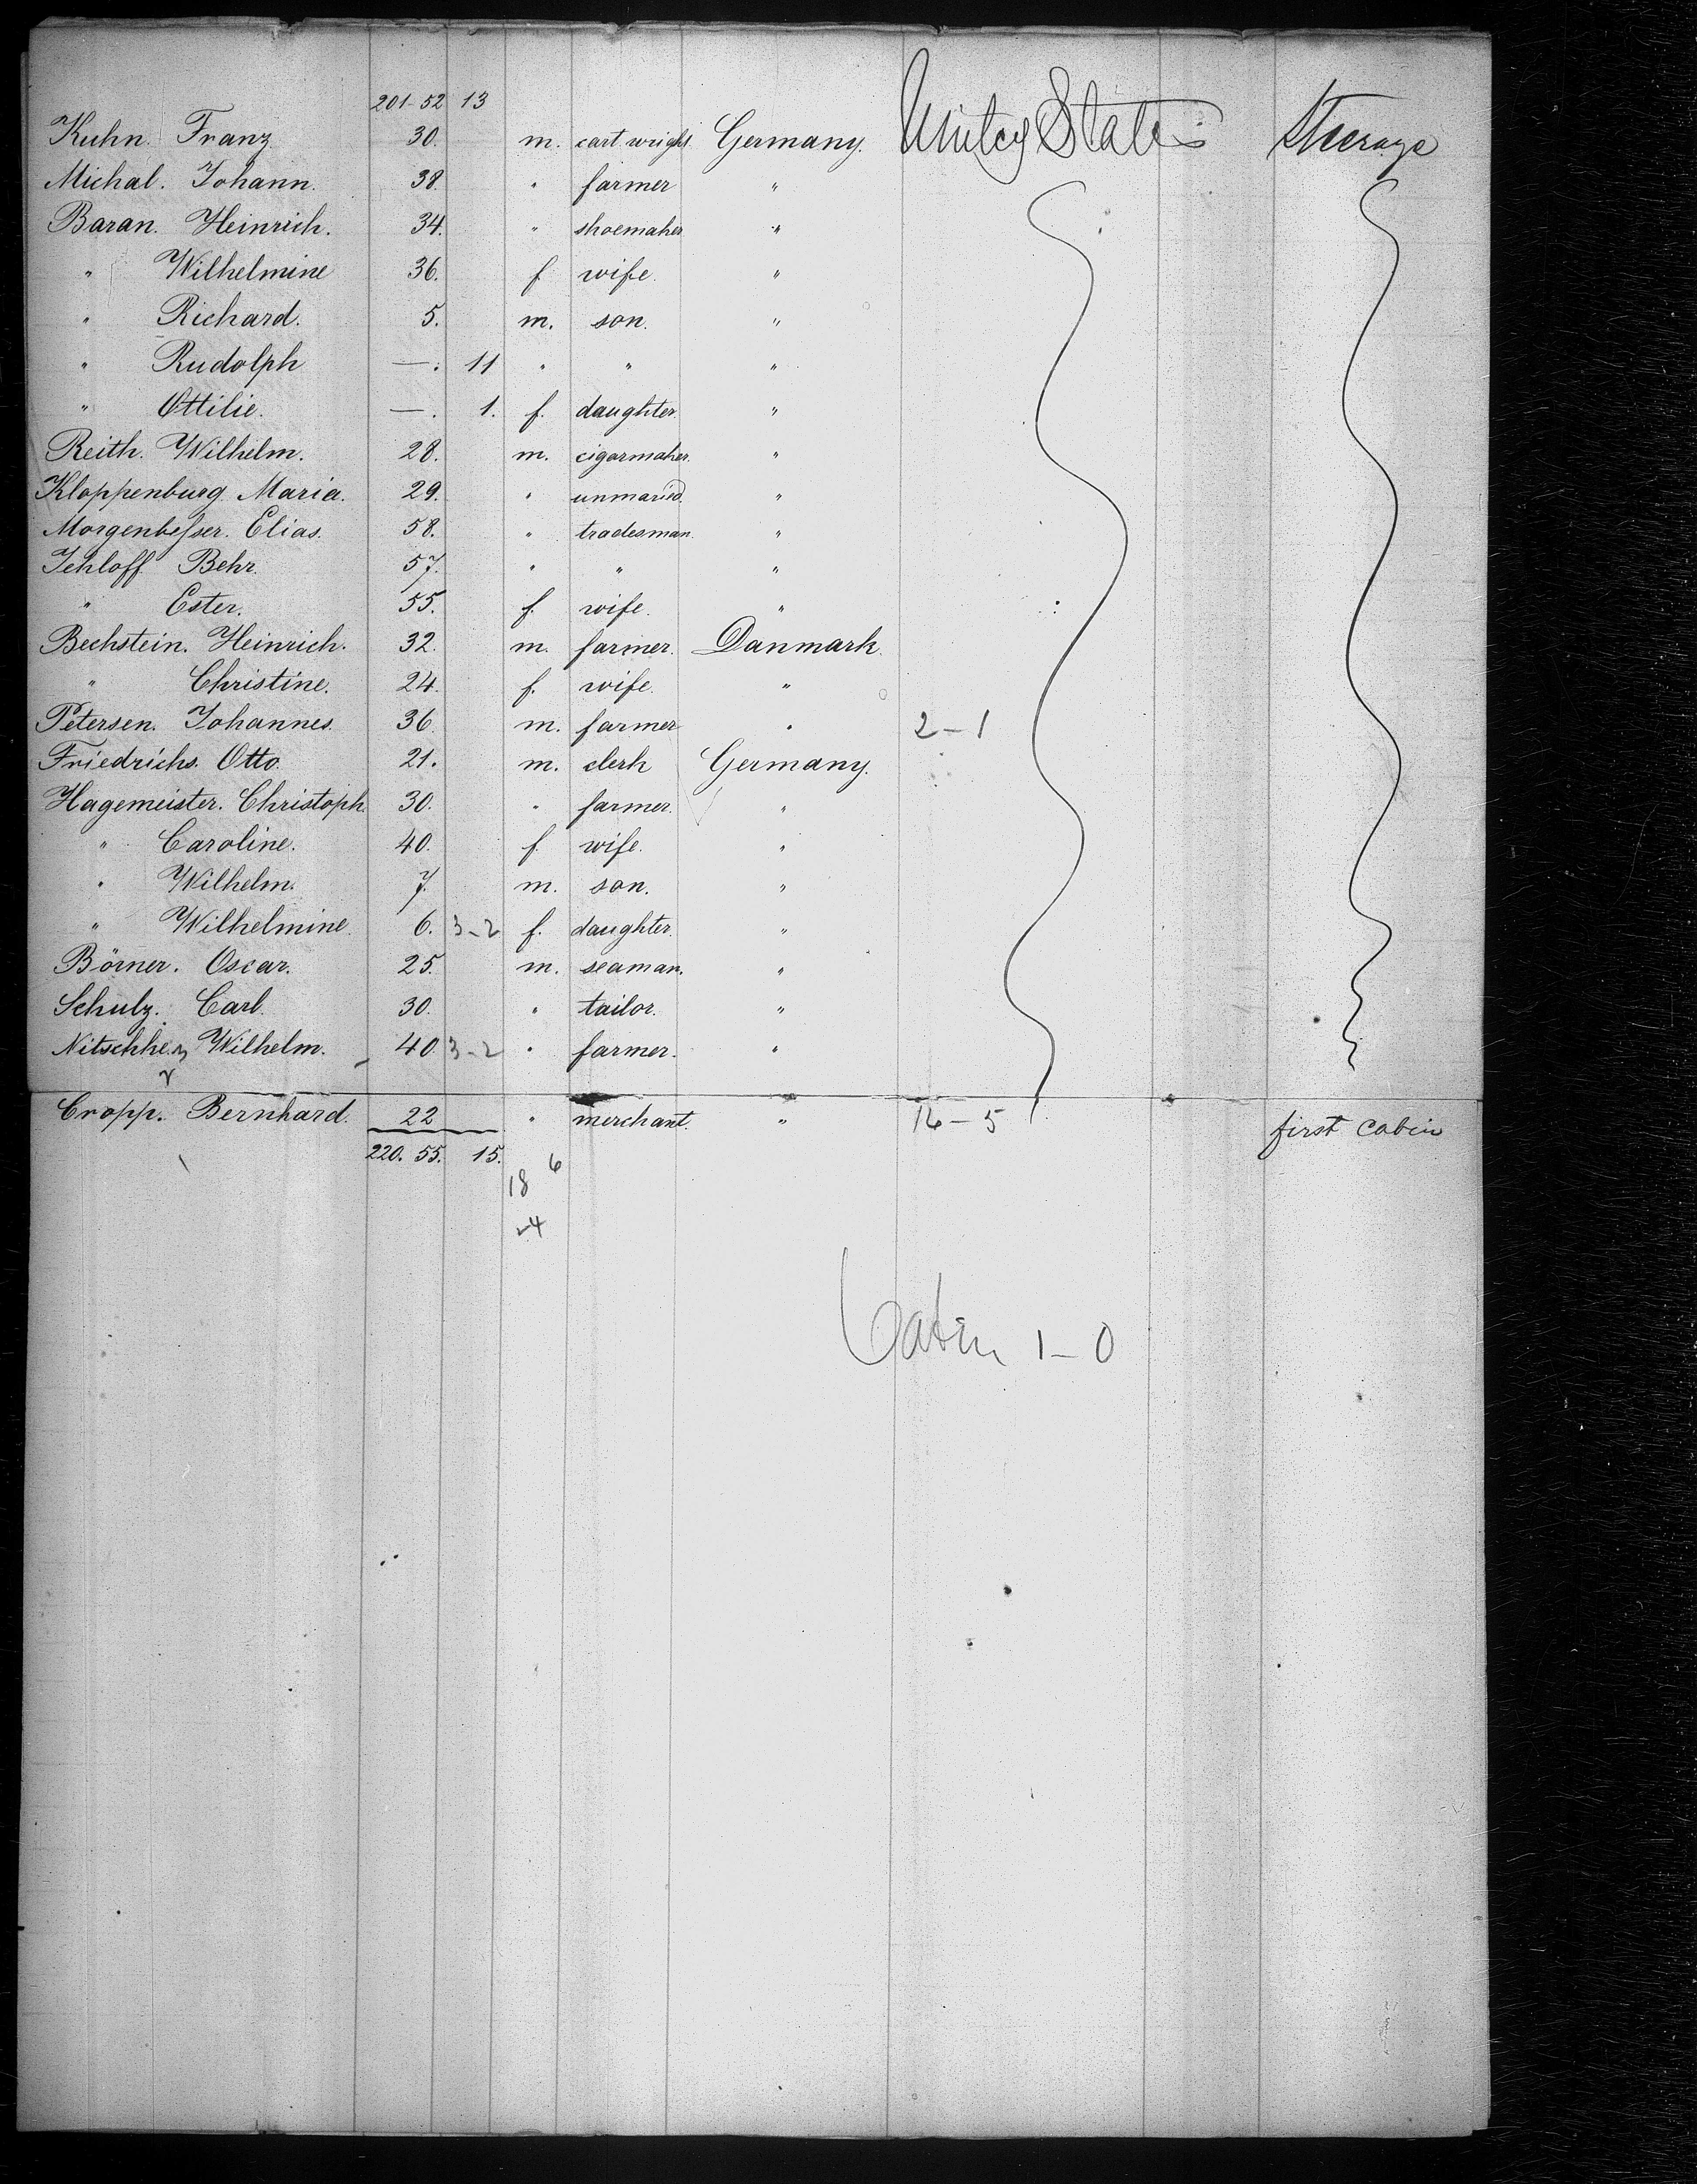 201-52 13
Kuhn. Franz 30. m. cart wright. Germany. United States Steerage
Michal. Johann. 38. " farmer "
Baran. Heinrich. 34. " shoemaker "
" Wilhelmine 36. f wife. "
" Richard. 5. m. son. "
" Rudolph —. 11 " " "
" Ottilie. —. 1. f. daughter. "
Reith. Wilhelm. 28. m. cigarmaker. "
Kloppenburg. Maria. 29. " unmaried. "
Morgenbesser. Elias. 58. " tradesman. "
Behr. 57. " " "
" Ester. 55. f. wife. "
Bechstein. Heinrich. 32. m. farmer. Danmark.
" Christine. 24. f. wife. "
Petersen. Johannes. 36 m. farmer " 2-1
Friedrichs. Otto. 21. m. clerk Germany.
Hagemeister. Christoph. 30. " farmer. "
" Caroline. 40. f. wife. "
" Wilhelm. 7. m. son. "
" Wilhelmine. 6. 3-2 f. daughter. "
Börner. Oscar. 25. m. seaman. "
Schulz. Carl. 30. " tailor. "
Nitschke. Wilhelm. 40. 3-2 " farmer. "
Cropp. Bernhard. 22 " merchant. " 16-5 first cabin
220. 55. 15.
6
18
24
Cabin 1-0